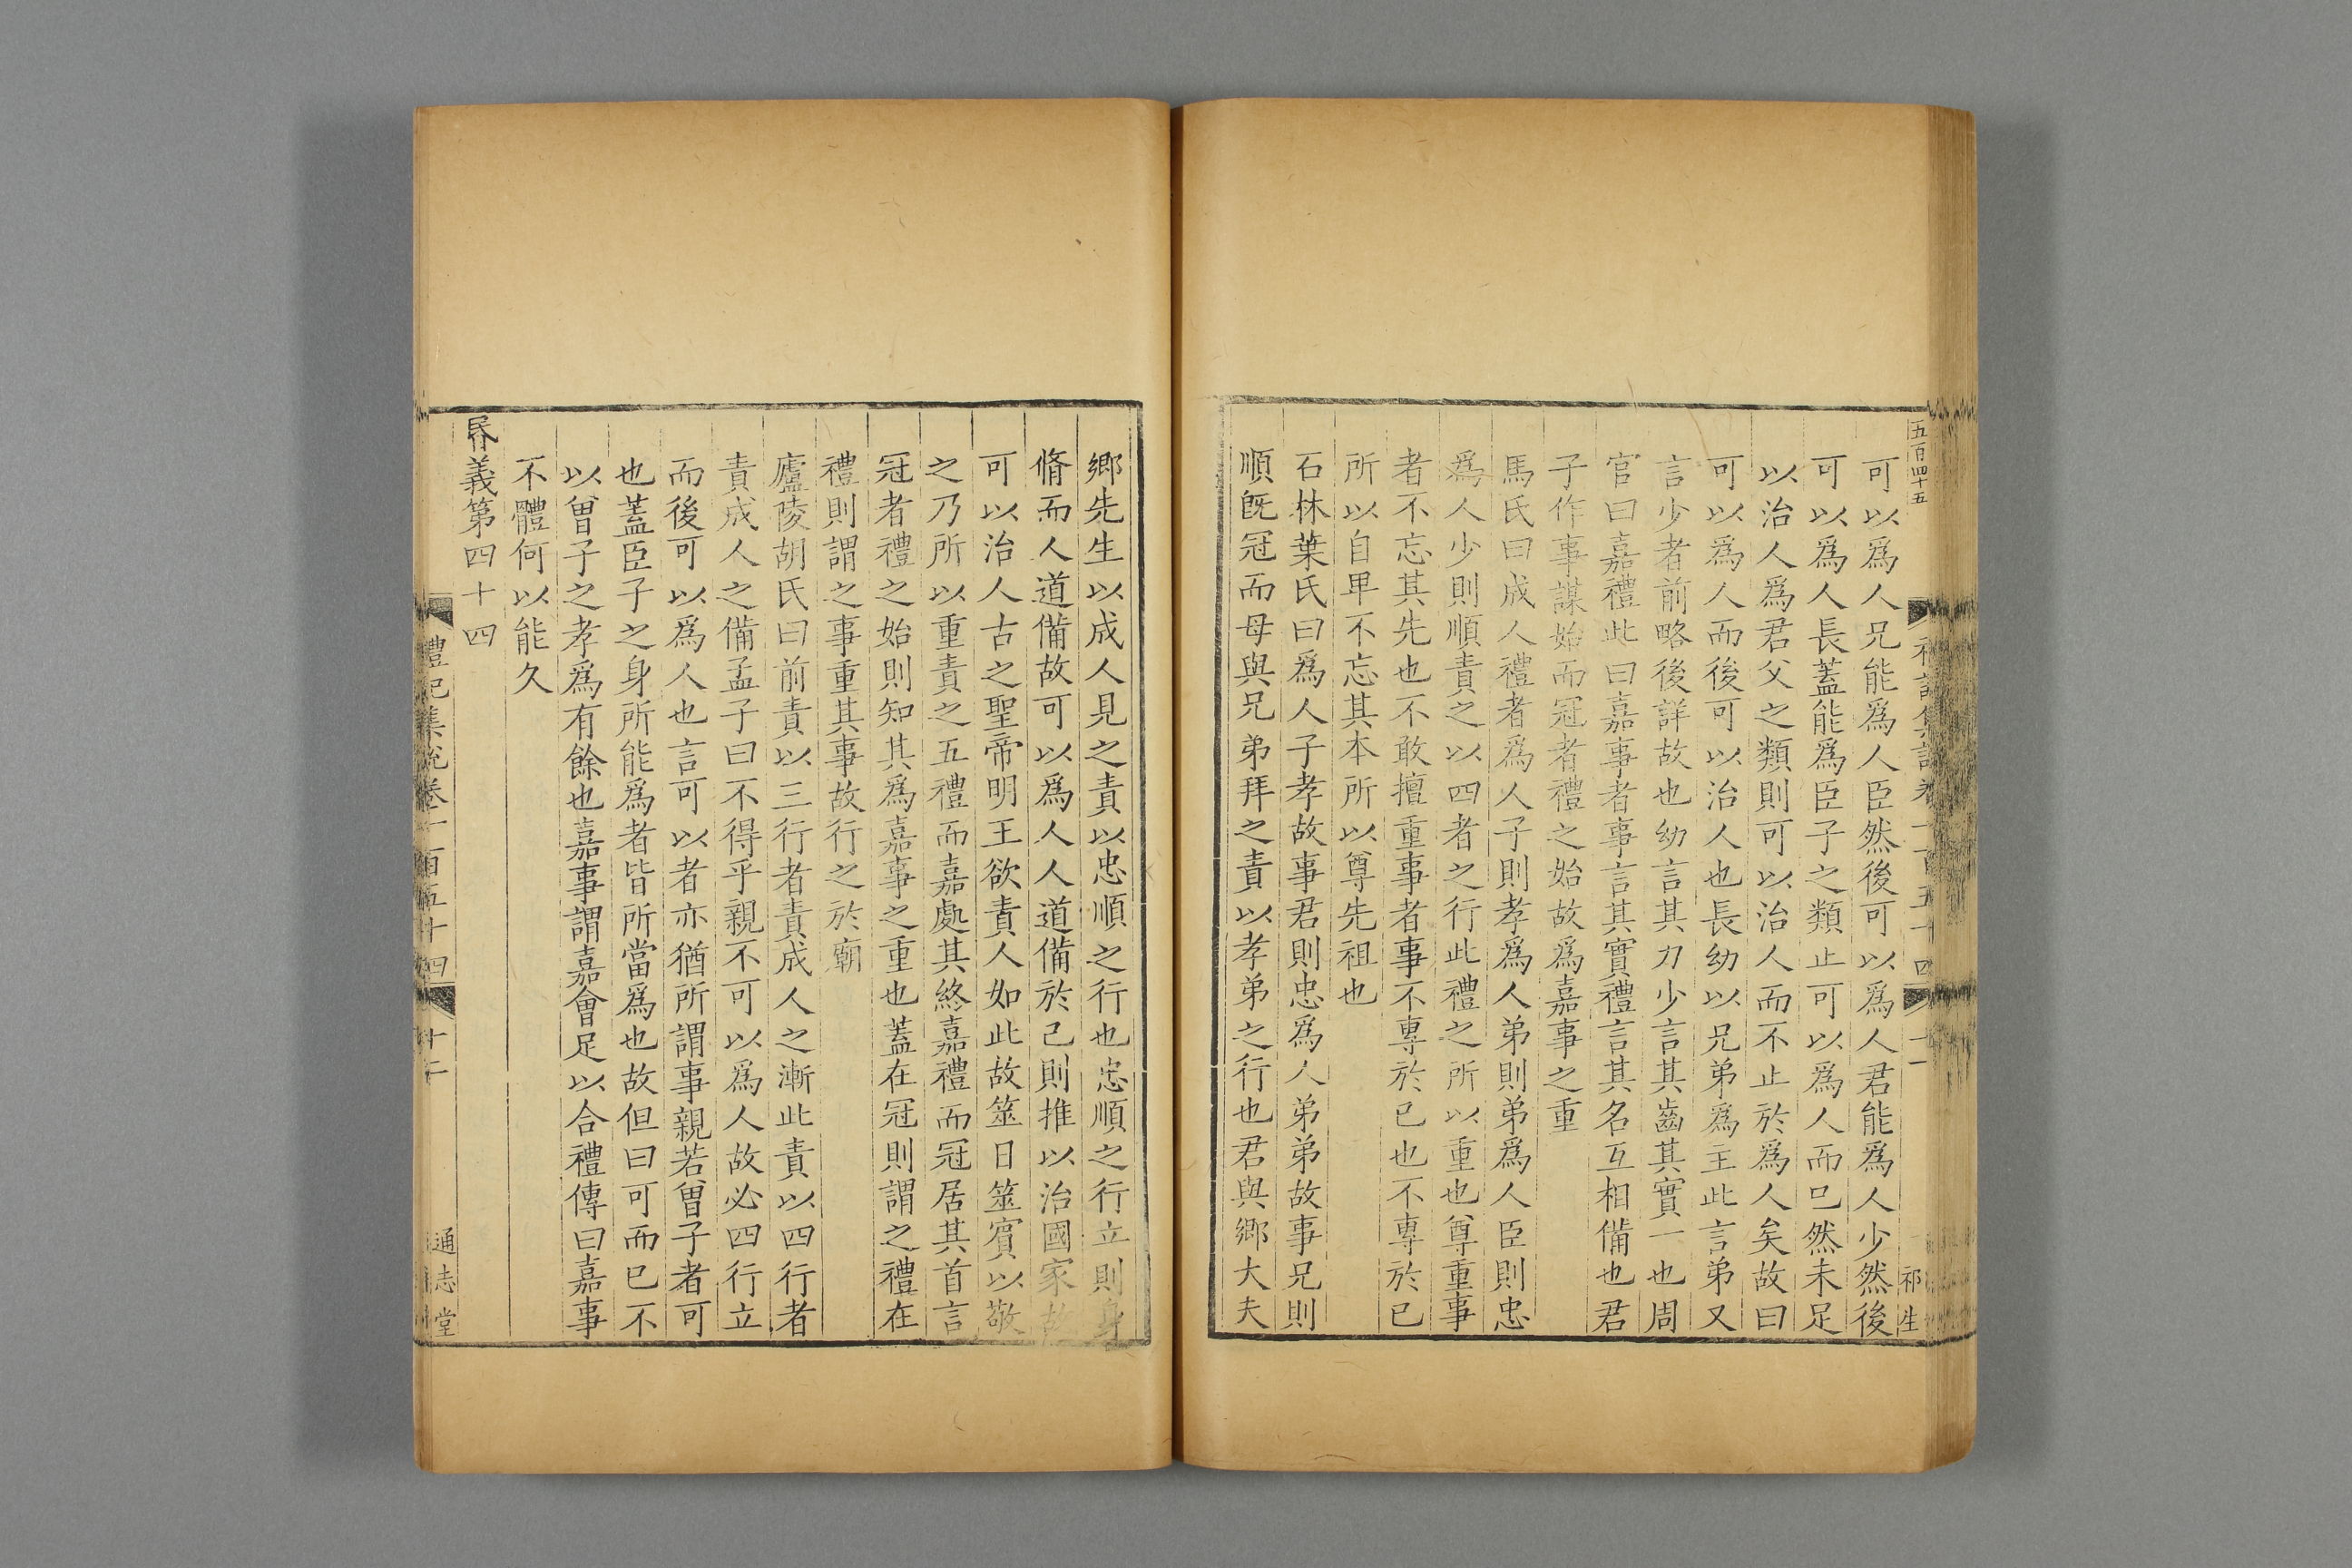 五百四十五
禮記集說卷一百五十四
十一
祁生
可以爲人兄能爲人臣然後可以爲人君能爲人少然後
可以爲人長蓋能爲臣子之類止可以爲人而已然未足
以治人爲君父之類則可以治人而不止於爲人矣故曰
可以爲人而後可以治人也長幼以兄弟爲主此言弟又
言少者前略後詳故也幼言其力少言其齒其實一也周
官曰嘉禮此曰嘉事者事言其實禮言其名互相備也君
子作事謀始而冠者禮之始故爲嘉事之重
馬氏曰成人禮者爲人子則孝爲人弟則弟爲人臣則忠
爲人少則順責之以四者之行此禮之所以重也尊重事
者不忘其先也不敢擅重事者事不專於已也不專於已
所以自卑不忘其本所以尊先祖也
石林葉氏曰爲人子孝故事君則忠爲人弟弟故事兄則
順旣冠而母與兄弟拜之責以孝弟之行也君與鄉大夫
鄉先生以成人見之責以忠順之行也忠順之行立則身
脩而人道備故可以爲人人道備於己則推以治國家故
可以治人古之聖帝明王欲責人如此故筮日筮賓以敬
之乃所以重責之五禮而嘉處其終嘉禮而冠居其首言
冠者禮之始則知其爲嘉事之重也蓋在冠則謂之禮在
禮則謂之事重其事故行之於廟
廬陵胡氏曰前責以三行者責成人之漸此責以四行者
責成人之備孟子曰不得乎親不可以爲人故必四行立
而後可以爲人也言可以者亦猶所謂事親若曾子者可
也蓋臣子之身所能爲者皆所當爲也故但曰可而已不
以曾子之孝爲有餘也嘉事謂嘉會足以合禮傳曰嘉事
不體何以能久
昬義第四十四
禮記集說卷一百五十四
十二
通志堂